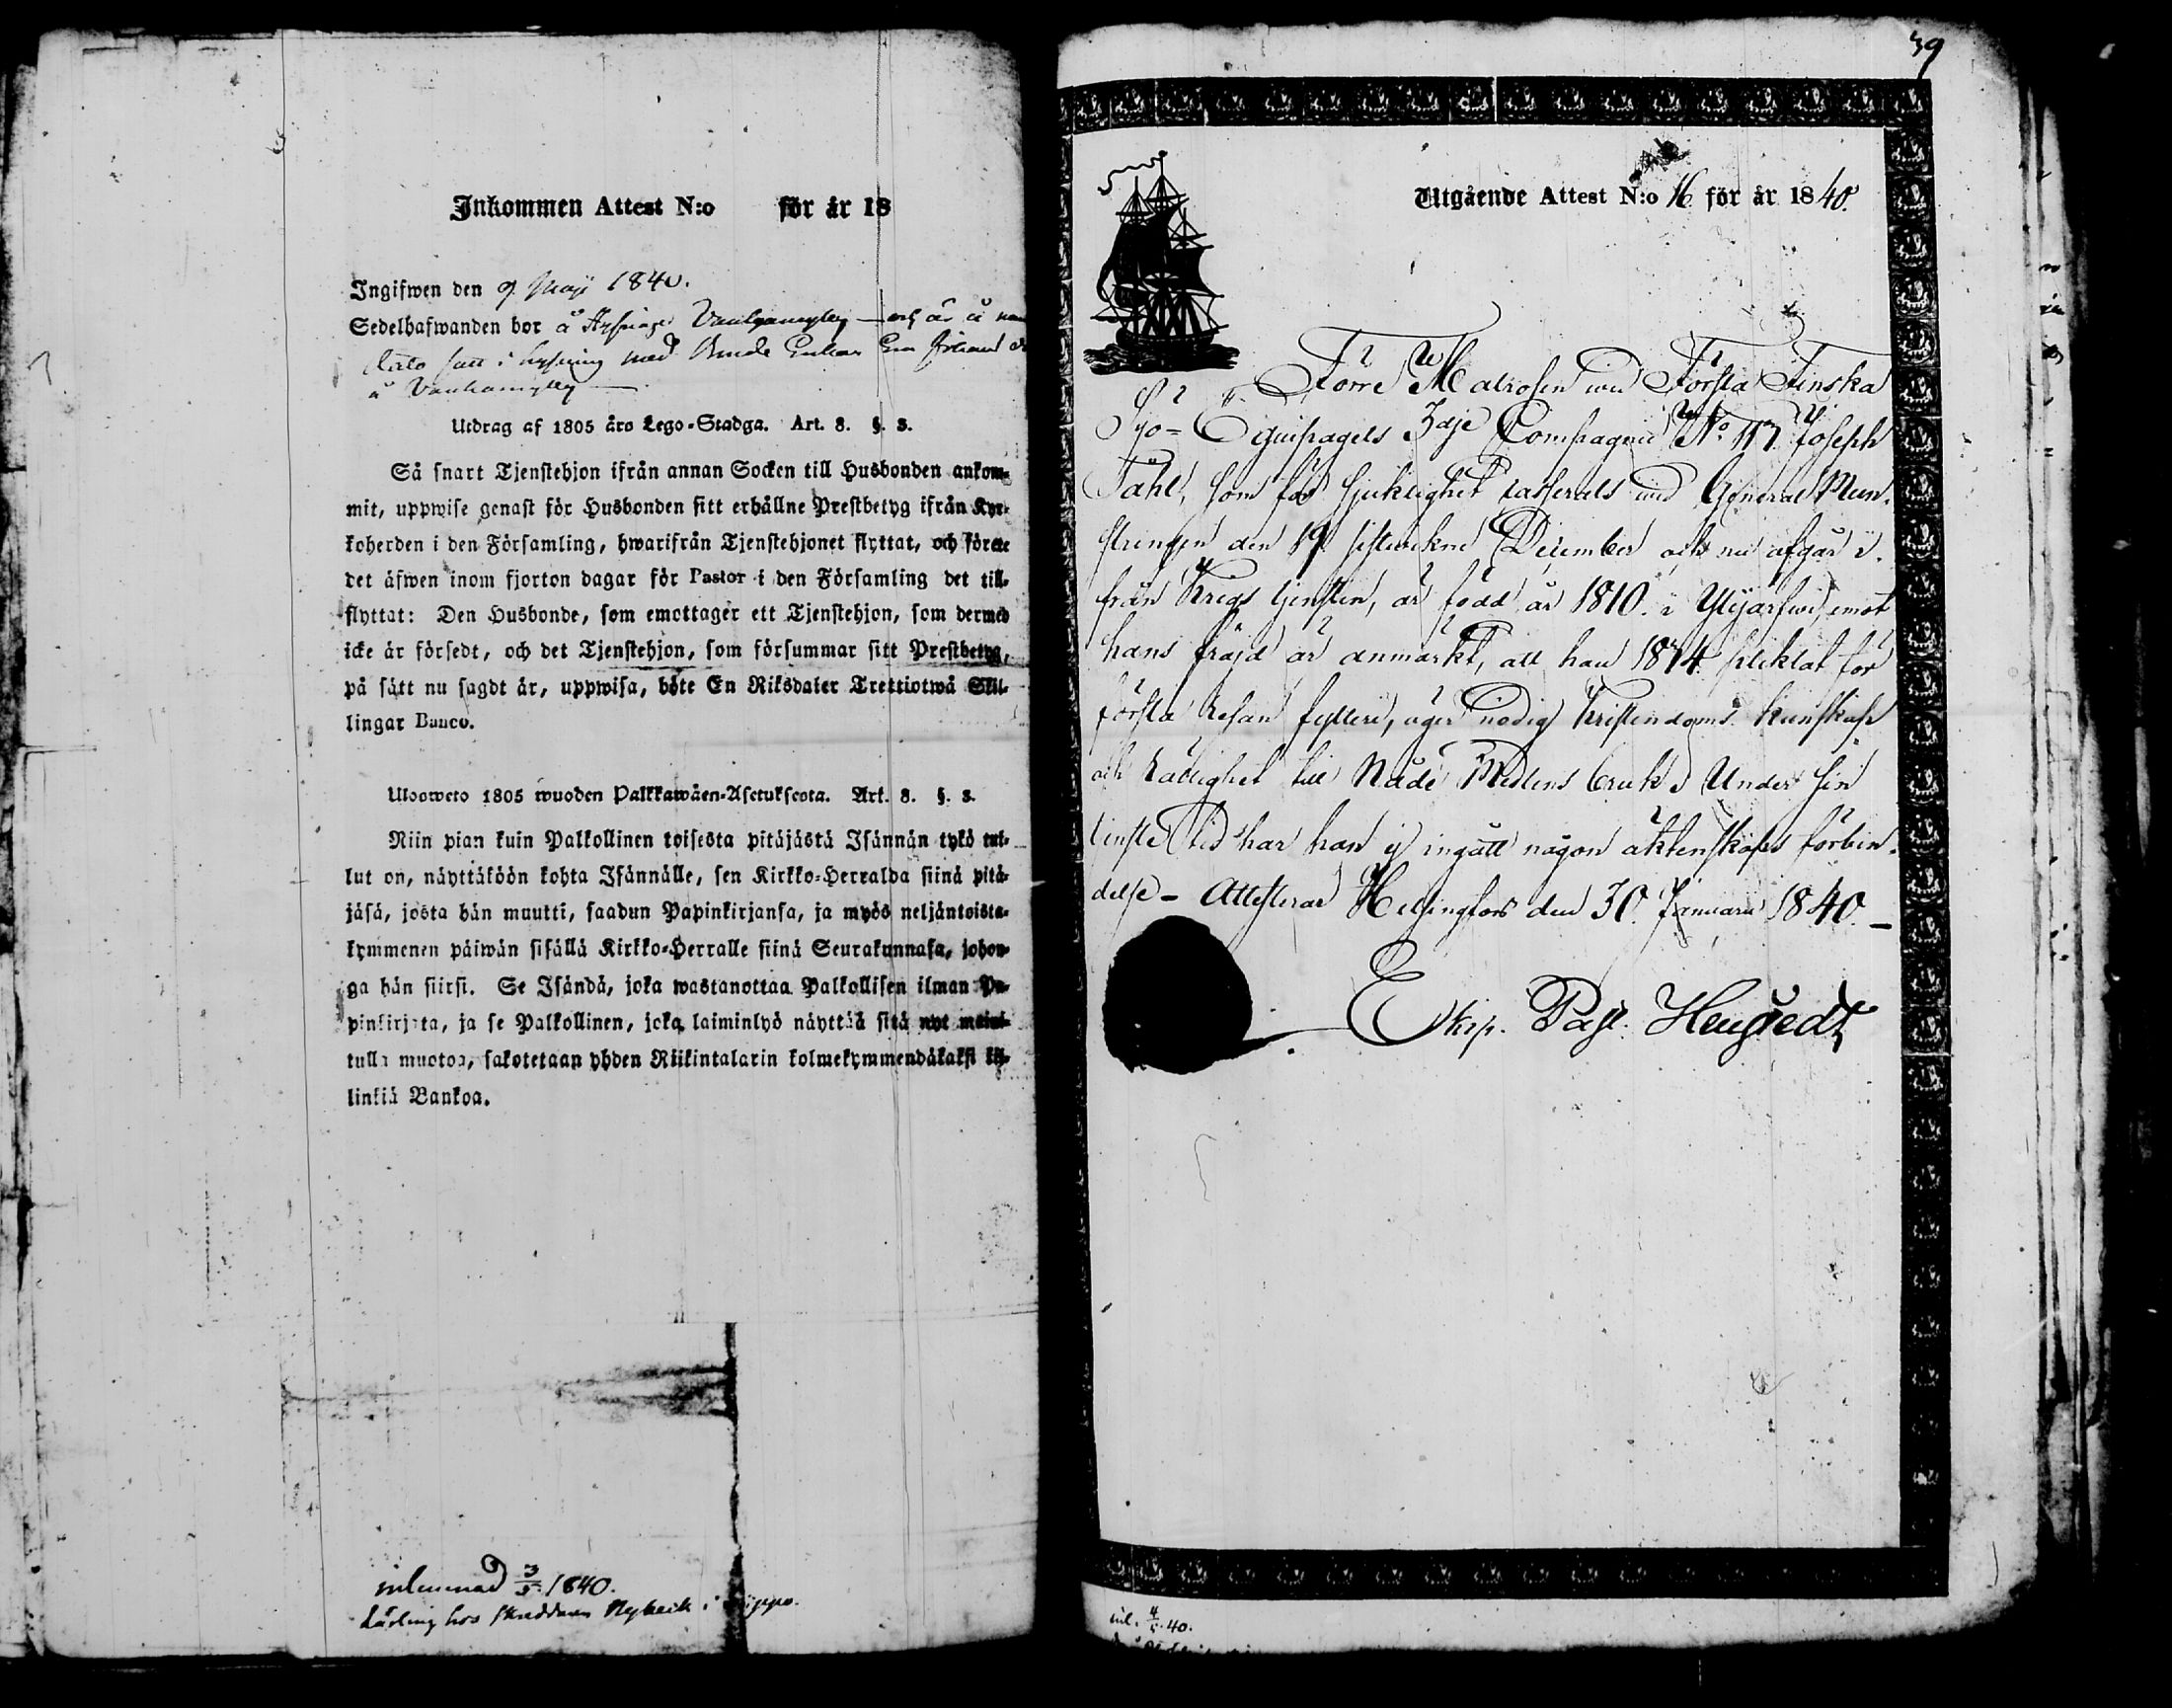 Inkommen Attest N:o för år 18
Ingifwen den 9 Maji 1840.
Sedelhafwanden bor å
med Enkan
å
Utdrag af 1805 års Lego-Stadga. Art. 8. §. 3.
Så snart Tjenstehjon ifrån annan Socken till Husbonden ankom-
mit, uppwise genast för Husbonden sitt erhållne Prestbetyg ifrån Kyr-
koherden i den Församling, hwarifrån Tjenstehjonet flyttat, och förete
det äfwen inom fjorton dagar för Pastor i den Församling det till-
flyttat: Den Husbonde, som emottager ett Tjenstehjon, som dermed
icke är försedt, och det Tjenstehjon, som försummar sitt Prestbetyg,
på sätt nu sagdt är, uppwisa, böte En Riksdaler Trettiotwå Skil-
lingar Banco.
Ulosweto 1805 wuoden Palkkawäen-Asetuksesta. Art. 8. §. 3.
Niin pian kuin Palkollinen toisesta pitäjästä Isännän tykö tul-
lut on, näyttäköön kohta Isännälle, sen Kirkko-Herralda siinä pitä-
jäsä, josta hän muutti, saadun Papinkirjansa, ja myös neljäntoista-
kymmenen päiwän sisällä Kirkko-Herralle siinä Seurakunnasa, johon-
ga hän siirsi. Se Isändä, joka wastanottaa Palkollisen ilman Pa-
pinkirjata, ja se Palkollinen, joka laiminlyö näyttää sitä nyt maini-
tulla muotoa, sakotetaan yhden Riikintalarin kolmekymmendäkaksi kil-
linkiä Bankoa.
inlemnad 3/5 1840.
Lärling hos skräddaren i
39
Utgående Attest N:o 16 för år 1840.
Förre Matrosen wid Första Finska
Sjö-Equipagets 3dje Compagnie No 117. Joseph
Tåhl, som för sjuklighet casserats wid General Mun-
stringen den 19 sistwekne December och nu afgår i-
från Krigs tjensten, är född år 1810. i Ylijärfwi, emot
hans fräjd är anmärkt, att han 1834 pliktat för
första resan fylleri, äger nödig Kristendoms kunskap
och Laglighet till Nåde Medlens bruk. Under sin
tjenste tid har han ej ingått någon äktenskaps förbin-
delse - Attesterar Helsingfors den 30. Januarii 1840. -
Ekip. Past.
inl. 4/5 40.